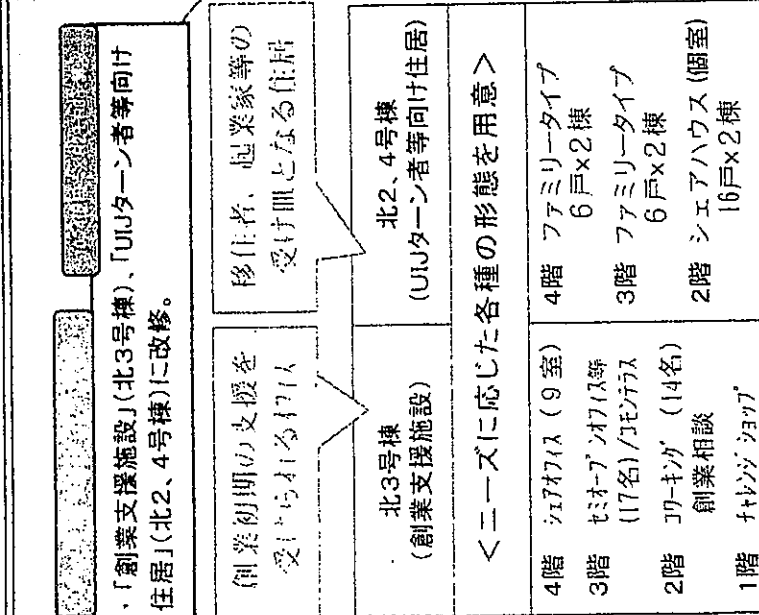 ・「創業支援施設」(北3号棟)、「UIJターン者等向け
住居」(北2、4号棟)に改修。
創業初期の支援を
受けられるオフィス
移住者、起業家等の
受け皿となる住居
北3号棟
(創業支援施設)
北2、4号棟
(UIJターン者等向け住居)
<ニーズに応じた各種の形態を用意>
4階 シェアオフィス (9室)
3階 セミオープンオフィス等
(17名)/コモンテラス
2階 コワーキング (14名)
創業相談
1階 チャレンジショップ
4階 ファミリータイプ
6戸×2棟
3階 ファミリータイプ
6戸×2棟
2階 シェアハウス (個室)
16戸×2棟